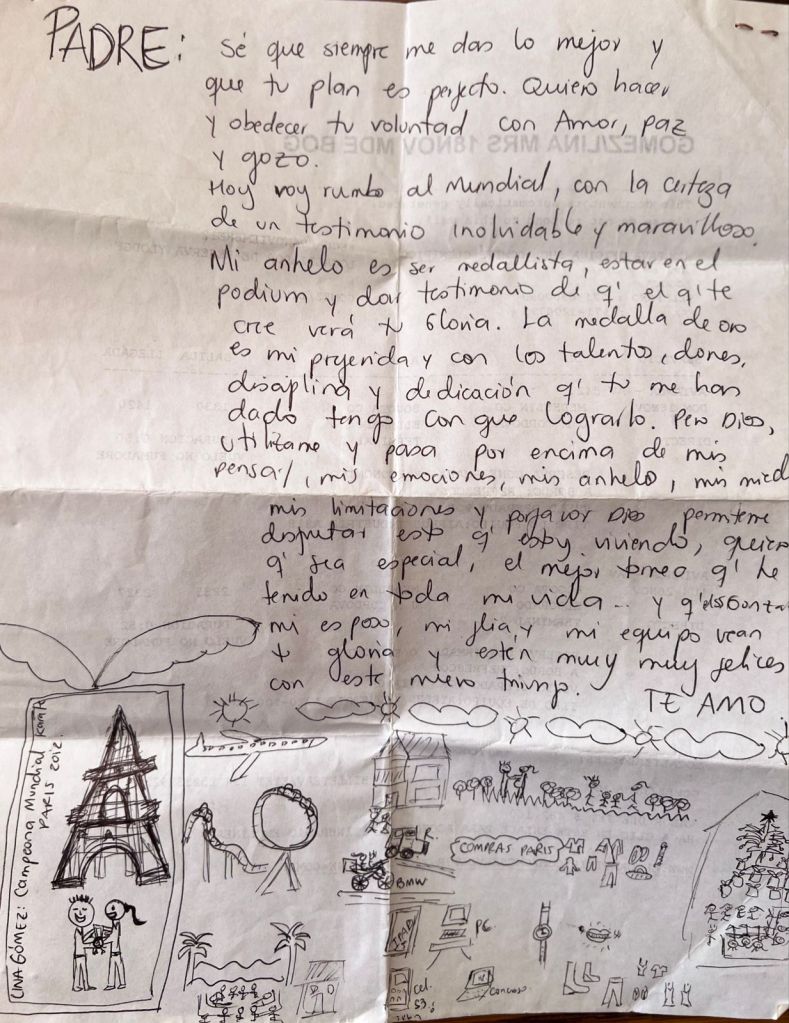 PADRE: Sé que siempre me das lo mejor y
que tu plan es perfecto. Quiero hacer
y obedecer tu voluntad con Amor, paz
y gozo.
Hoy voy rumbo al Mundial, con la certeza
de un testimonio inolvidable y maravilloso.
Mi anhelo es ser medallista, estar en el
podium y dar testimonio de q' el q' te
cree verá tu Gloria. La medalla de oro
es mi preferida y con los talentos, dones,
disciplina y dedicación q' tu me has
dado tengo con que lograrlo. Pero Dios,
utilízame y pasa por encima de mis
pensar/, mis emociones, mis anhelo, mis mied
mis limitaciones y porfavor Dios permiteme
disfrutar esto q' estoy viviendo, quiero
q' sea especial, el mejor torneo q' he
tenido en toda mi vida... y q'
mi esposo, mi flia, y mi equipo vean
tu gloria y estén muy muy felices
con este nuevo triunfo. TE AMO
LINA GÓMEZ: Campeona Mundial Karate
PARIS 2012.
COMPRAS PARIS
BMW
IPAD
PC
Cel.
S3
GOMEZ/LINA MRS 18NOV MDE BOG